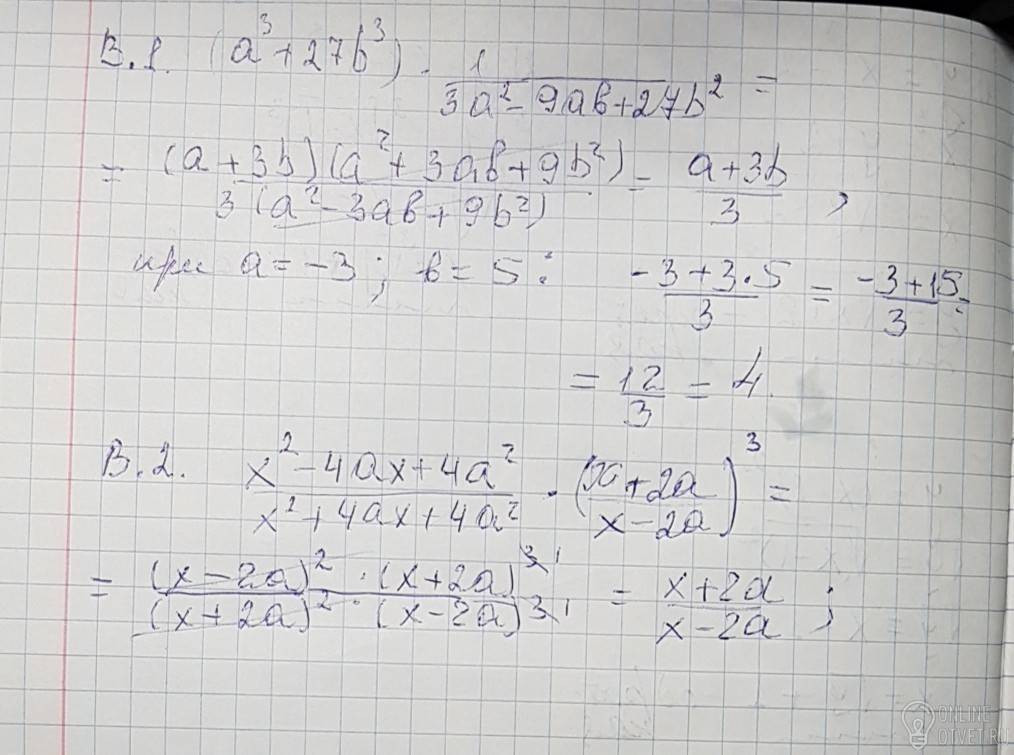 В.1. (a³+27b³) · 1/(3a²-9ab+27b²) =
= (a+3b)(a²+3ab+9b²)/3(a²-3ab+9b²) = (a+3b)/3 ,
при a=-3; b=5: (-3+3·5)/3 = (-3+15)/3 =
= 12/3 = 4.
В.2. (x²-4ax+4a²)/(x²+4ax+4a²) · ((x+2a)/(x-2a))³ =
= (x-2a)²·(x+2a)³ ¹/(x+2a)²·(x-2a)³ ¹ = (x+2a)/(x-2a) ;
ONLINE
OTVET.RU